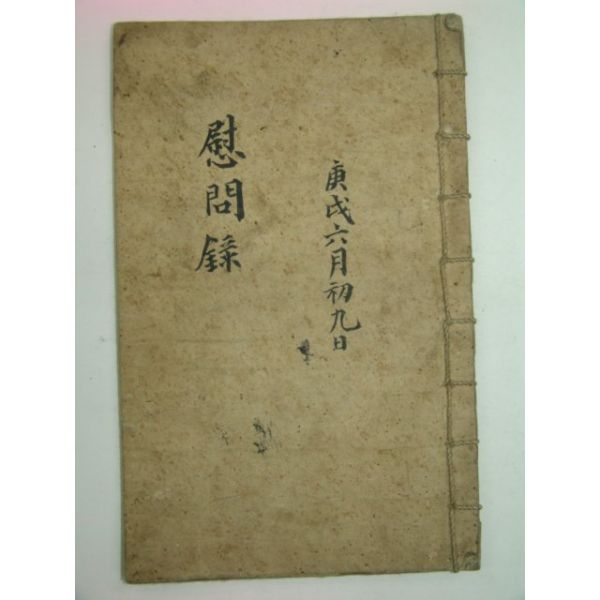 庚戌六月初九日
慰問錄